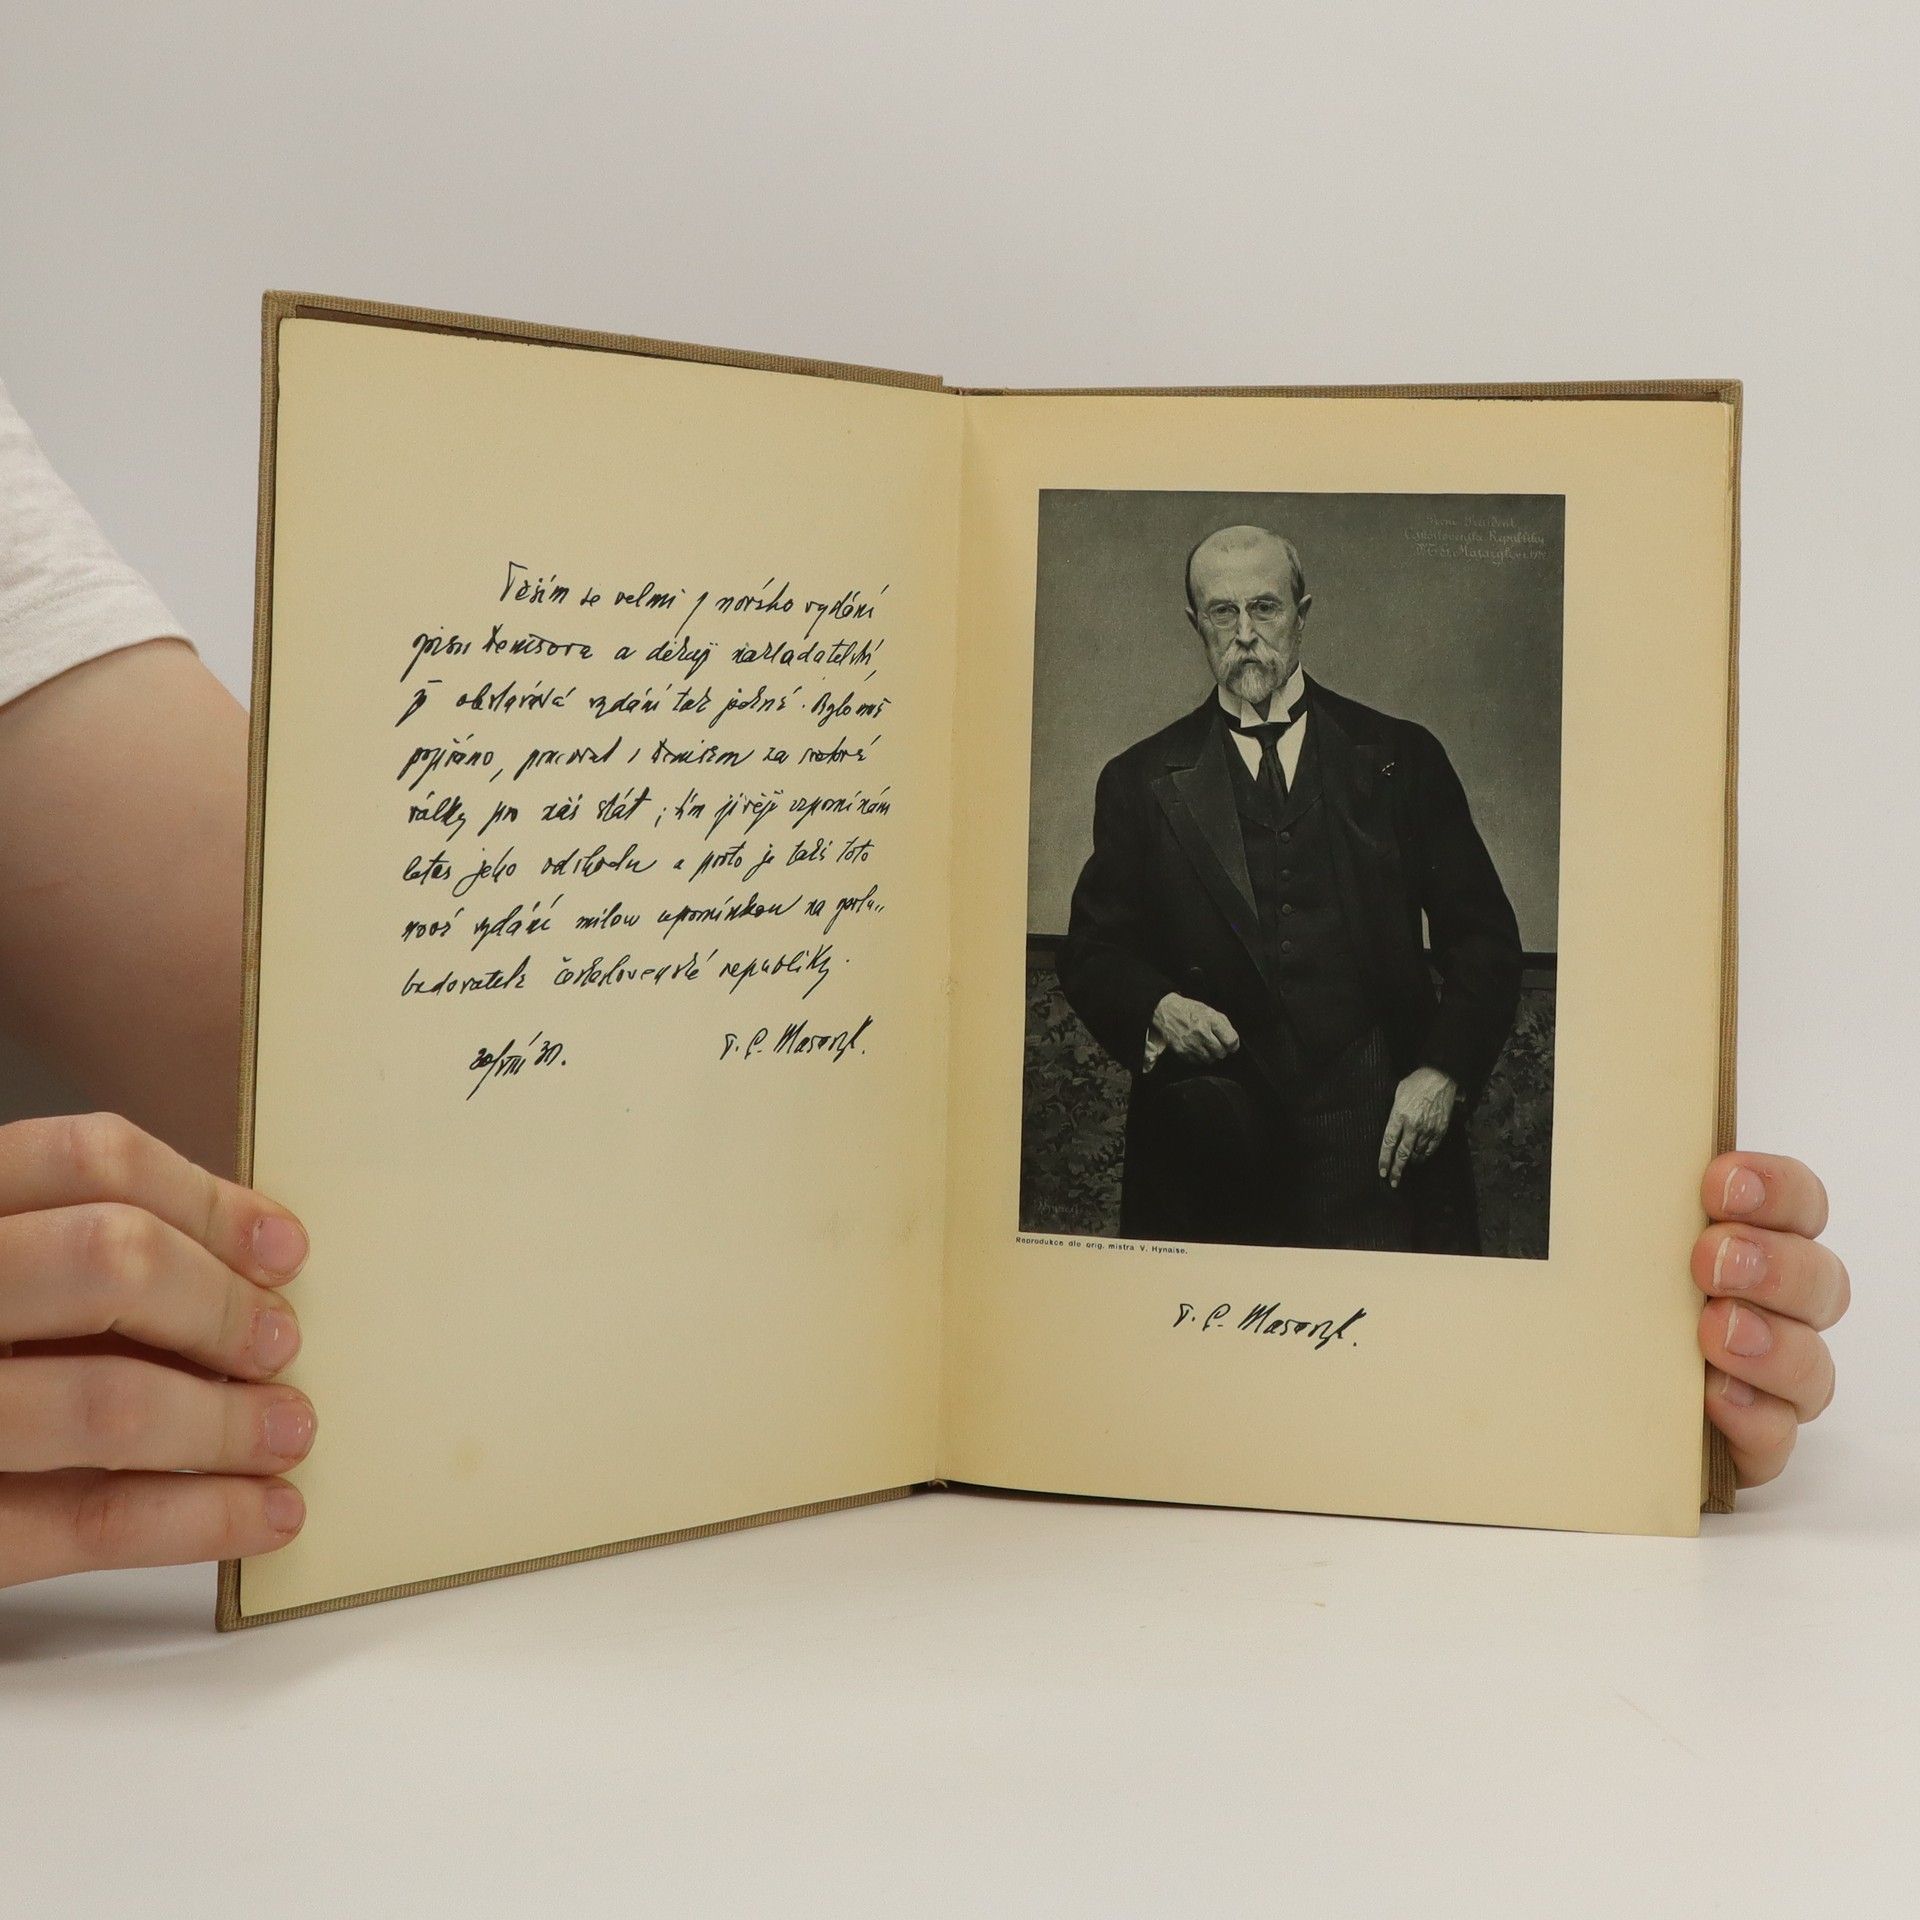 Těším se velmi z nového vydání
spisu Denisova a děkuji nakladatelství,
že obstarává vydání tak pěkné. Bylo mě
popřáno, pracovat s Denisem za světové
války pro náš stát; tím živěji vzpomínám
letos jeho odchodu a proto je také toto
nové vydání milou upomínkou na spolu-
budovatele československé republiky.
30/VIII 30.
T. G. Masaryk.
První President
Československé Republiky
Dr T. G. Masaryk
Reprodukce dle orig. mistra V. Hynaise.
T. G. Masaryk.